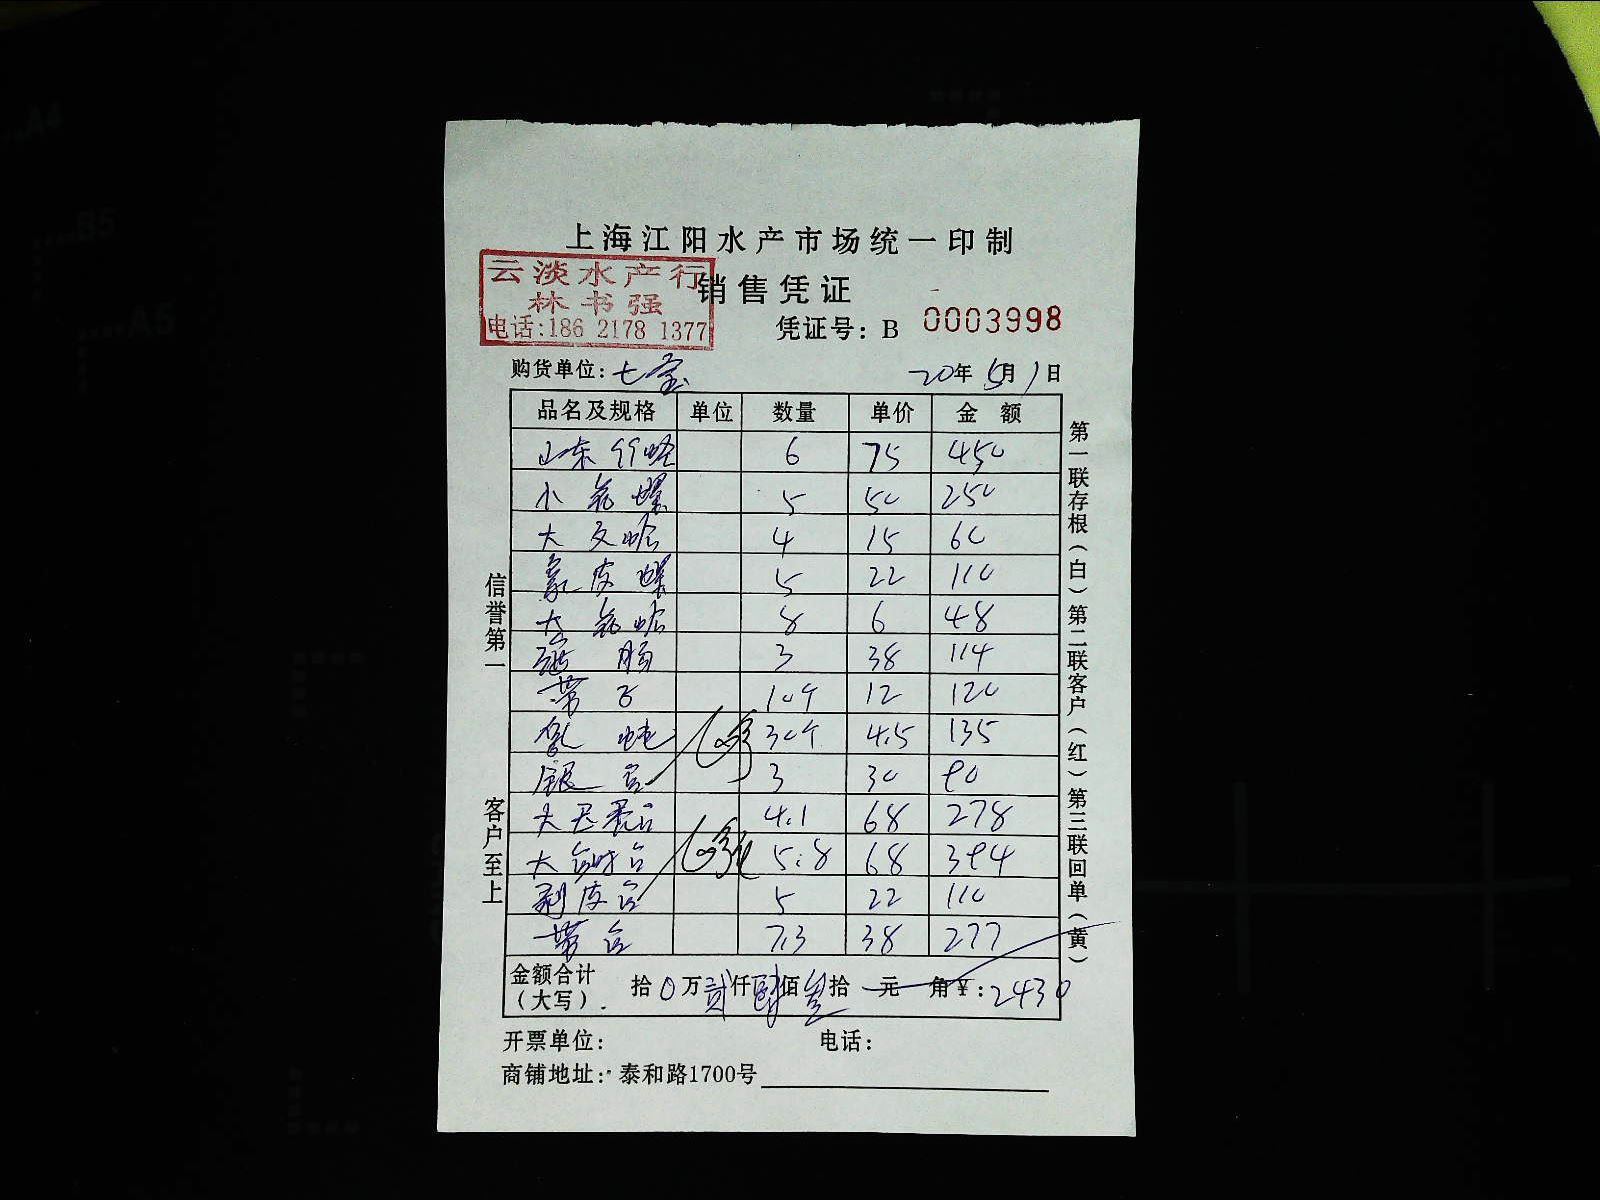 上海江阳水产市场统一印制
云淡水产行
林书强
电话:186 2178 1377
销售凭证
凭证号: B 0003998
购货单位: 七宝 20年5月1日
品名及规格 单位 数量 单价 金额
山东 6 75 450
小花螺 5 50 250
大文蛤 4 15 60
象皮螺 5 22 110
大花蛤 8 6 48
3 38 114
带子 10个 12 120
30个 4.5 135
银 3 30 90
大 4.1 68 278
大 5.8 68 394
剥皮 5 22 110
带 7.3 38 277
金额合计(大写). 拾0万贰仟肆佰叁拾元角¥:2430
开票单位: 电话:
商铺地址: 泰和路1700号
信誉第一 客户至上
第一联存根(白)第二联客户(红)第三联回单(黄)